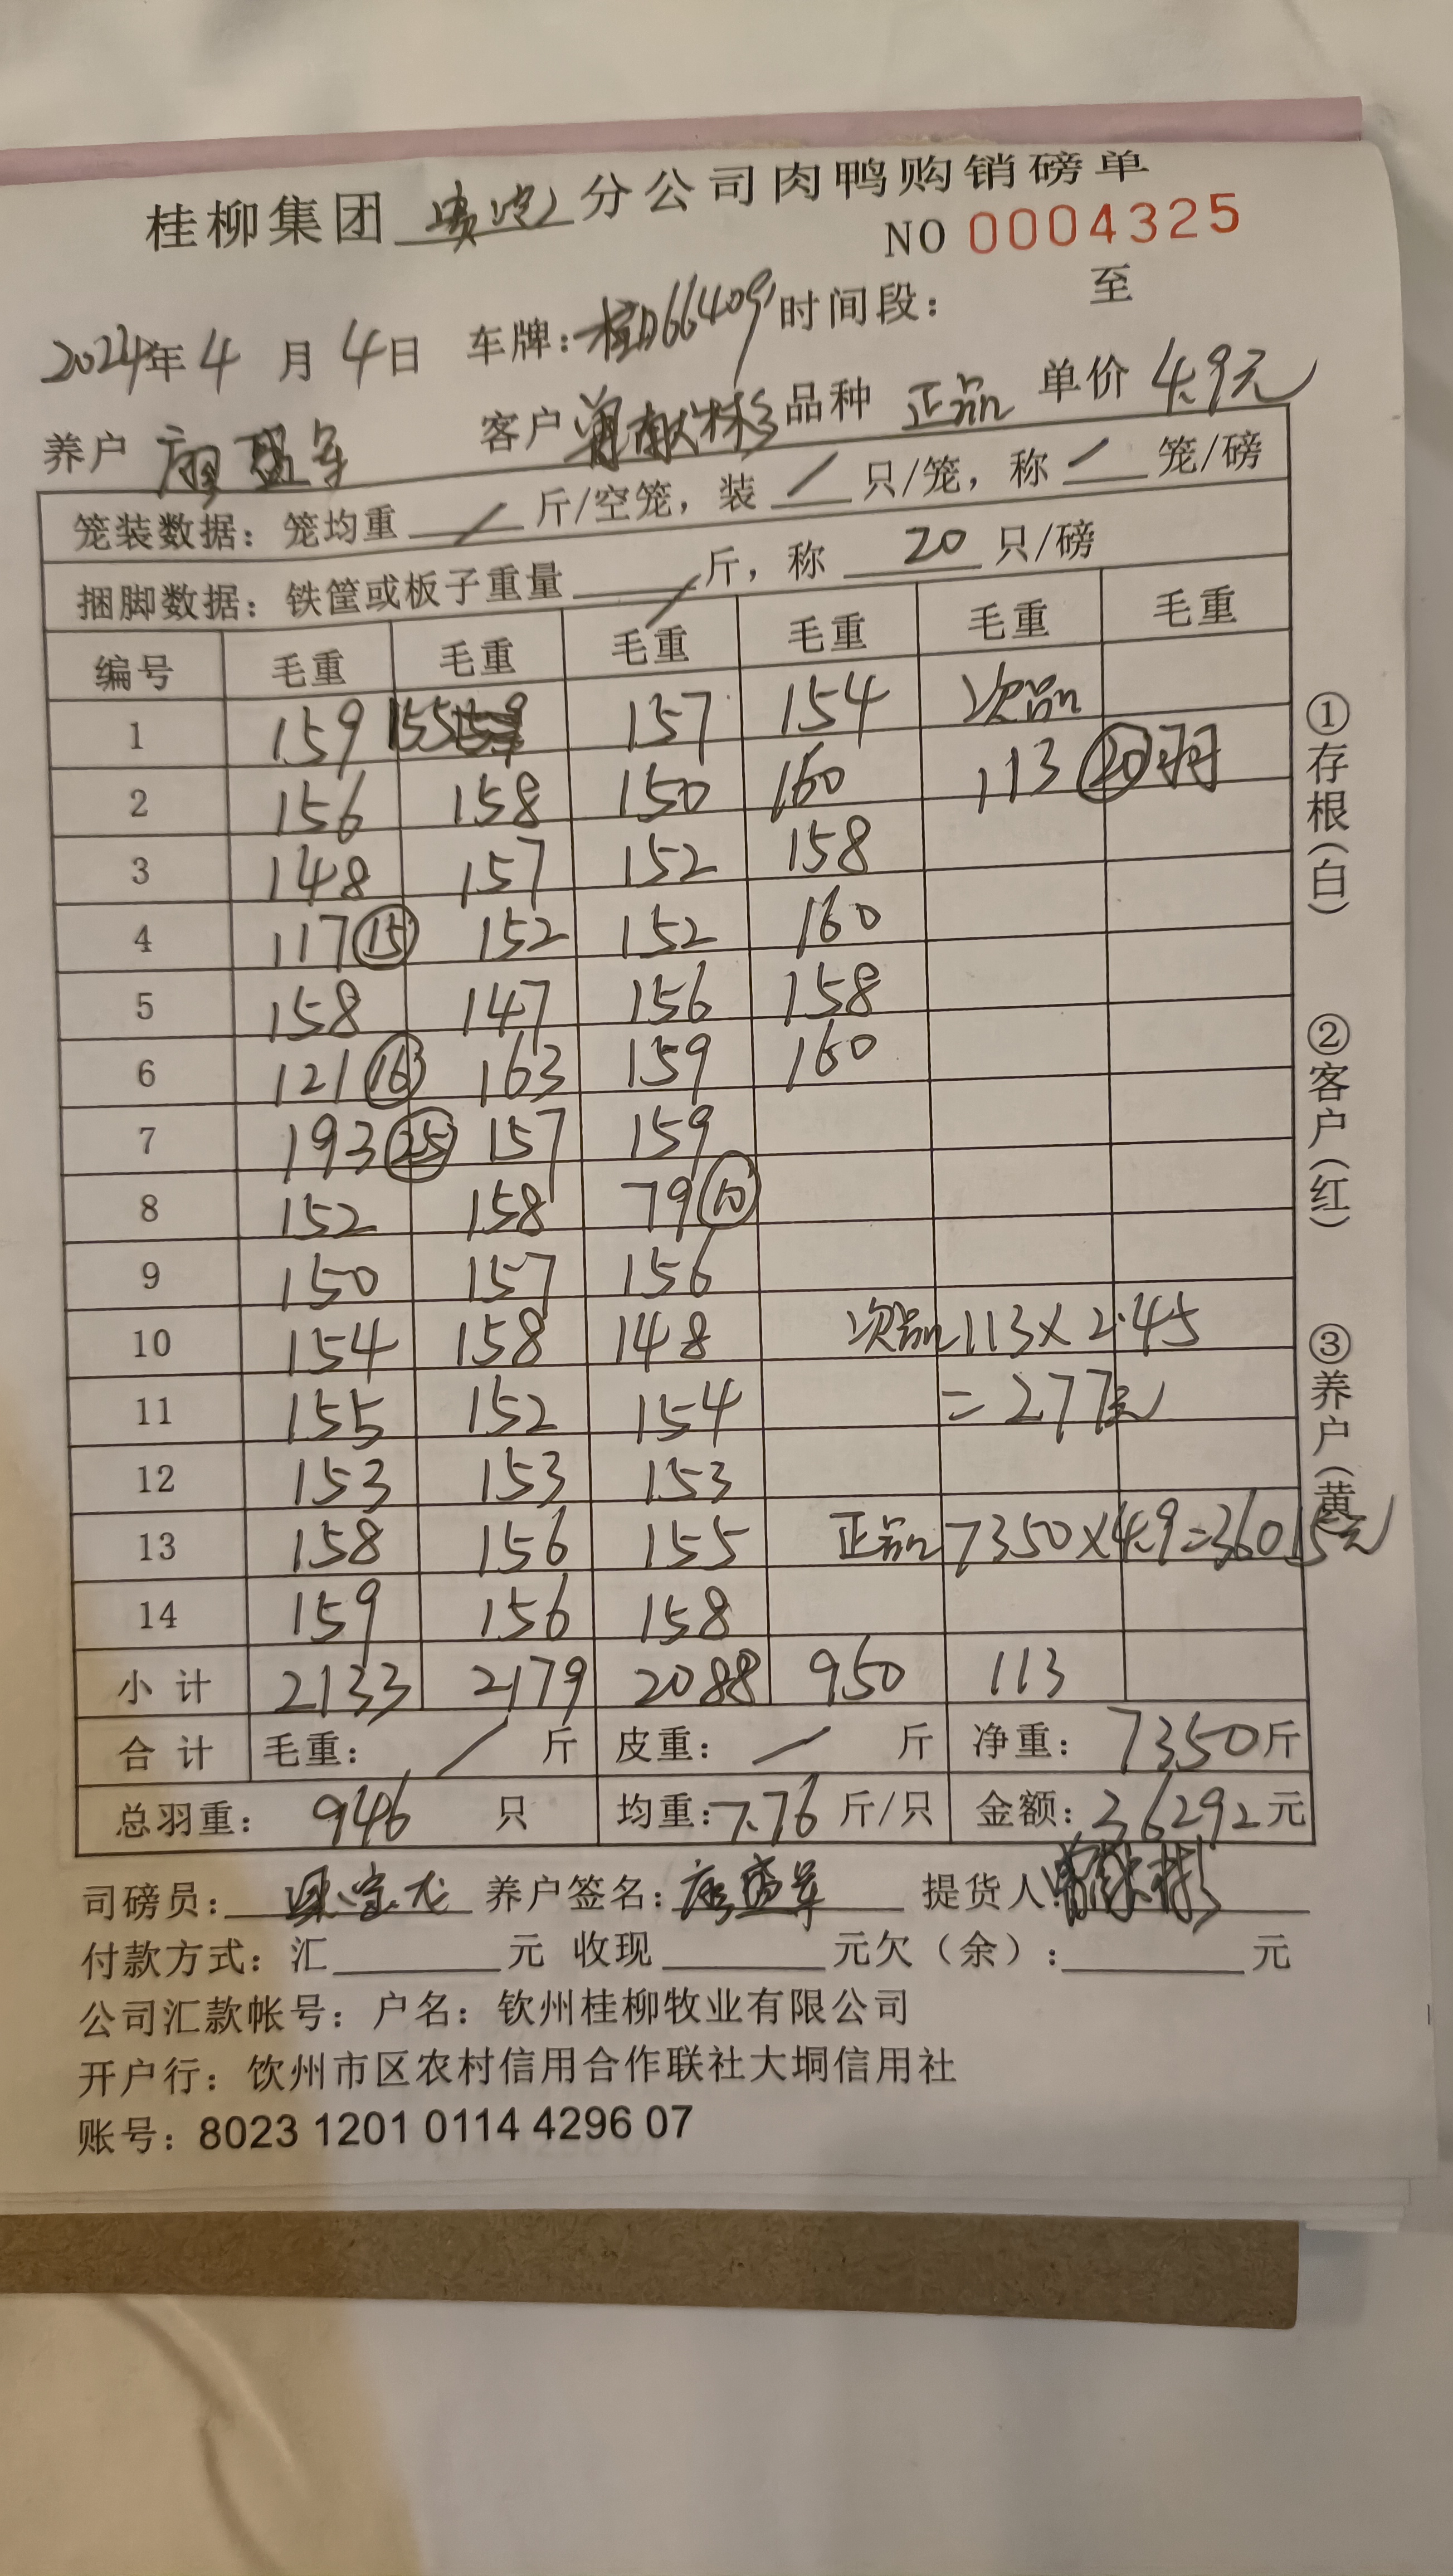 桂柳集团 贵港 分公司肉鸭购销磅单
NO 0004325
2024年4月4日 车牌:桂D66409 时间段: 至
养户 客户 品种 正品 单价 4.9元
笼装数据:笼均重 / 斤/空笼,装 / 只/笼,称 / 笼/磅
捆脚数据:铁筐或板子重量 / 斤,称 20 只/磅
编号 毛重 毛重 毛重 毛重 毛重 毛重
1 159 155 157 154 次品
2 156 158 150 160 113 ⑳羽
3 148 157 152 158
4 117 ⑮ 152 152 160
5 158 147 156 158
6 121 ⑯ 163 159 160
7 193 ㉕ 157 159
8 152 158 79 ⑩
9 150 157 156
10 154 158 148 次品 113×2.45
11 155 152 154 =277元
12 153 153 153
13 158 156 155 正品 7350×4.9=36015元
14 159 156 158
小计 2133 2179 2088 950 113
合计 毛重: / 斤 皮重: / 斤 净重: 7350斤
总羽重: 946 只 均重:7.76 斤/只 金额:36292元
司磅员: 养户签名: 提货人:
付款方式:汇 元 收现 元欠(余): 元
公司汇款帐号:户名:钦州桂柳牧业有限公司
开户行:饮州市区农村信用合作联社大垌信用社
账号:8023 1201 0114 4296 07
①存根(白) ②客户(红) ③养户(黄)